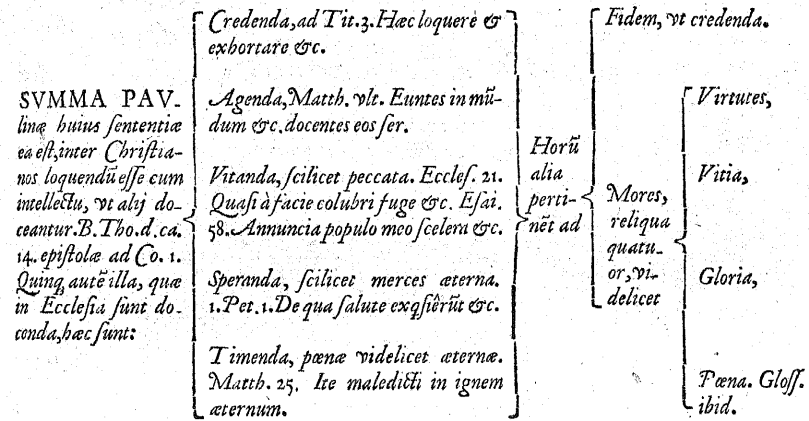 SVMMA PAV-
linæ huius ſententiæ
ea eſt, inter Chriſtia-
nos loquendũ eſſe cum
intellectu, vt alij do-
ceantur. B. Tho. d. ca.
14. epiſtolæ ad Co. 1.
Quinq; autẽ illa, quæ
in Eccleſia ſunt do-
conda, hæc ſunt:
Credenda, ad Tit. 3. Hæc loquere &
exhortare &c.
Agenda, Matth. vlt. Euntes in mũ-
dum &c. docentes eos ſer.
Vitanda, ſcilicet peccata. Eccleſ. 21.
Quaſi à facie colubri fuge &c. Eſai.
58. Annuncia populo meo ſcelera &c.
Speranda, ſcilicet merces æterna.
1. Pet. 1. De qua ſalute exqſiêrũt &c.
Timenda, pœnæ videlicet æternæ.
Matth. 25. Ite maledicti in ignem
æternum.
Horũ
alia
perti-
nẽt ad
Fidem, vt credenda.
Mores,
reliqua
quatu-
or, vi-
delicet
Virtutes,
Vitia,
Gloria,
Pœna. Gloſſ.
ibid.